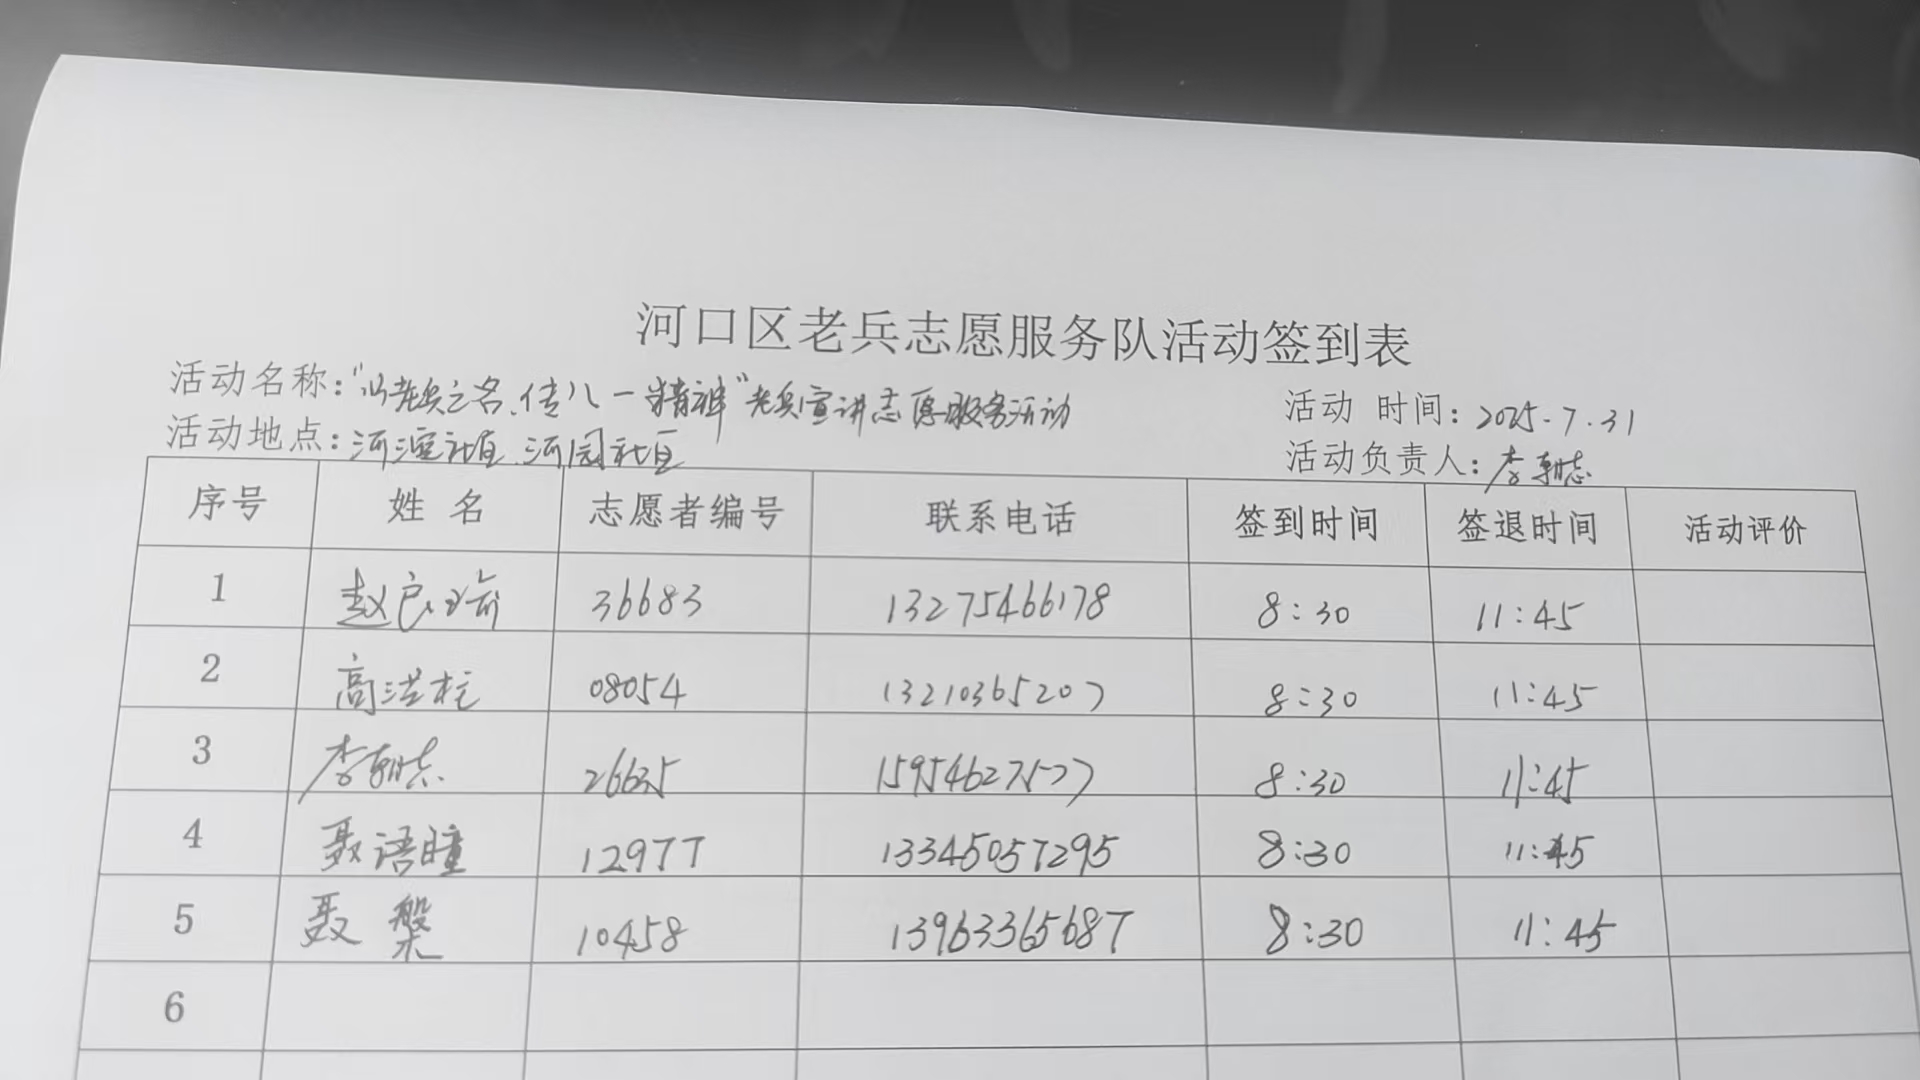 河口区老兵志愿服务队活动签到表
活动名称："以老兵之名、传八一精神"老兵宣讲志愿服务活动
活动时间：2025.7.31
活动地点：河滨社区、河园社区
活动负责人：李朝志
序号 姓名 志愿者编号 联系电话 签到时间 签退时间 活动评价
1 赵良瑜 36683 13275466178 8:30 11:45
2 高洪柱 08054 13210365207 8:30 11:45
3 李朝志 26635 15954627577 8:30 11:45
4 聂语瞳 12977 13345057295 8:30 11:45
5 聂槃 10458 13963365687 8:30 11:45
6